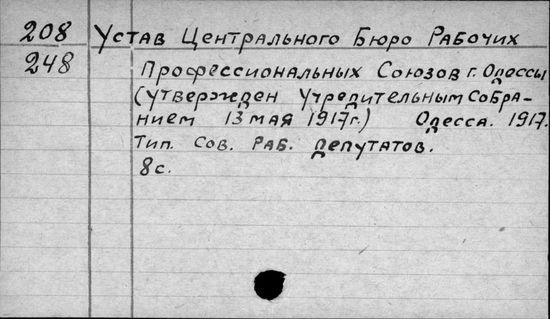 208 Устав Центрального Бюро Рабочих
248 Профессиональных Союзов г. Одессы
(утвержден Учредительным Собра-
нием 13 мая 1917г.) Одесса. 1917.
Тип. Сов. Раб. Депутатов.
8с.